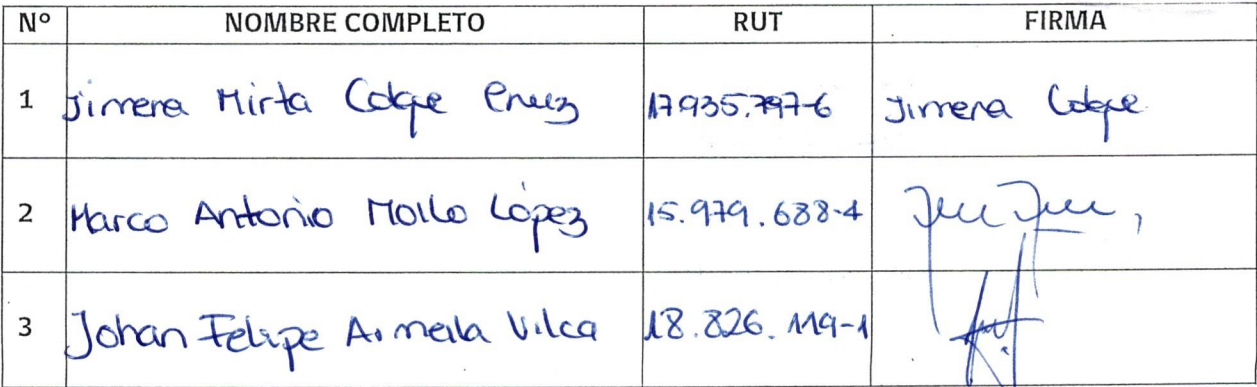 Nº NOMBRE COMPLETO RUT FIRMA
1 Jimena Mirta Colque Cruz 17.935.797-6 Jimena Colque
2 Marco Antonio Mollo López 15.979.688-4
3 Johan Felipe Vilca 18.826.119-1